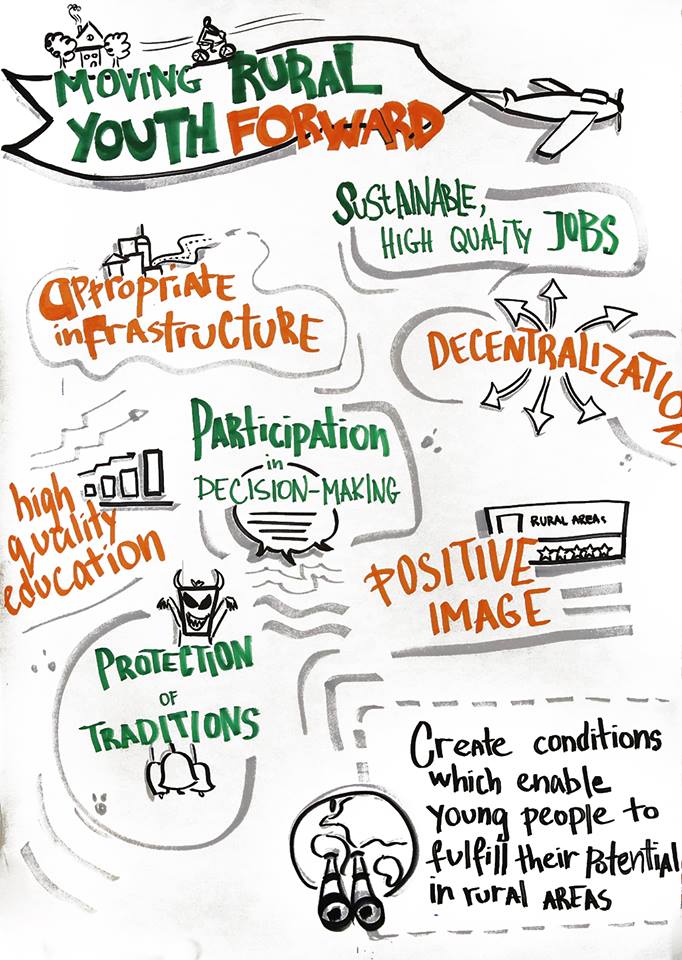 MOVING RURAL
YOUTH FORWARD
SUSTAINABLE,
HIGH QUALITY JOBS
appropriate
infrastructure
DECENTRALIZATION
Participation
in
DECISION-MAKING
high
quality
education
RURAL AREAS
POSITIVE
IMAGE
PROTECTION
OF
TRADITIONS
Create conditions
which enable
young people to
fulfill their potential
in rural AREAS